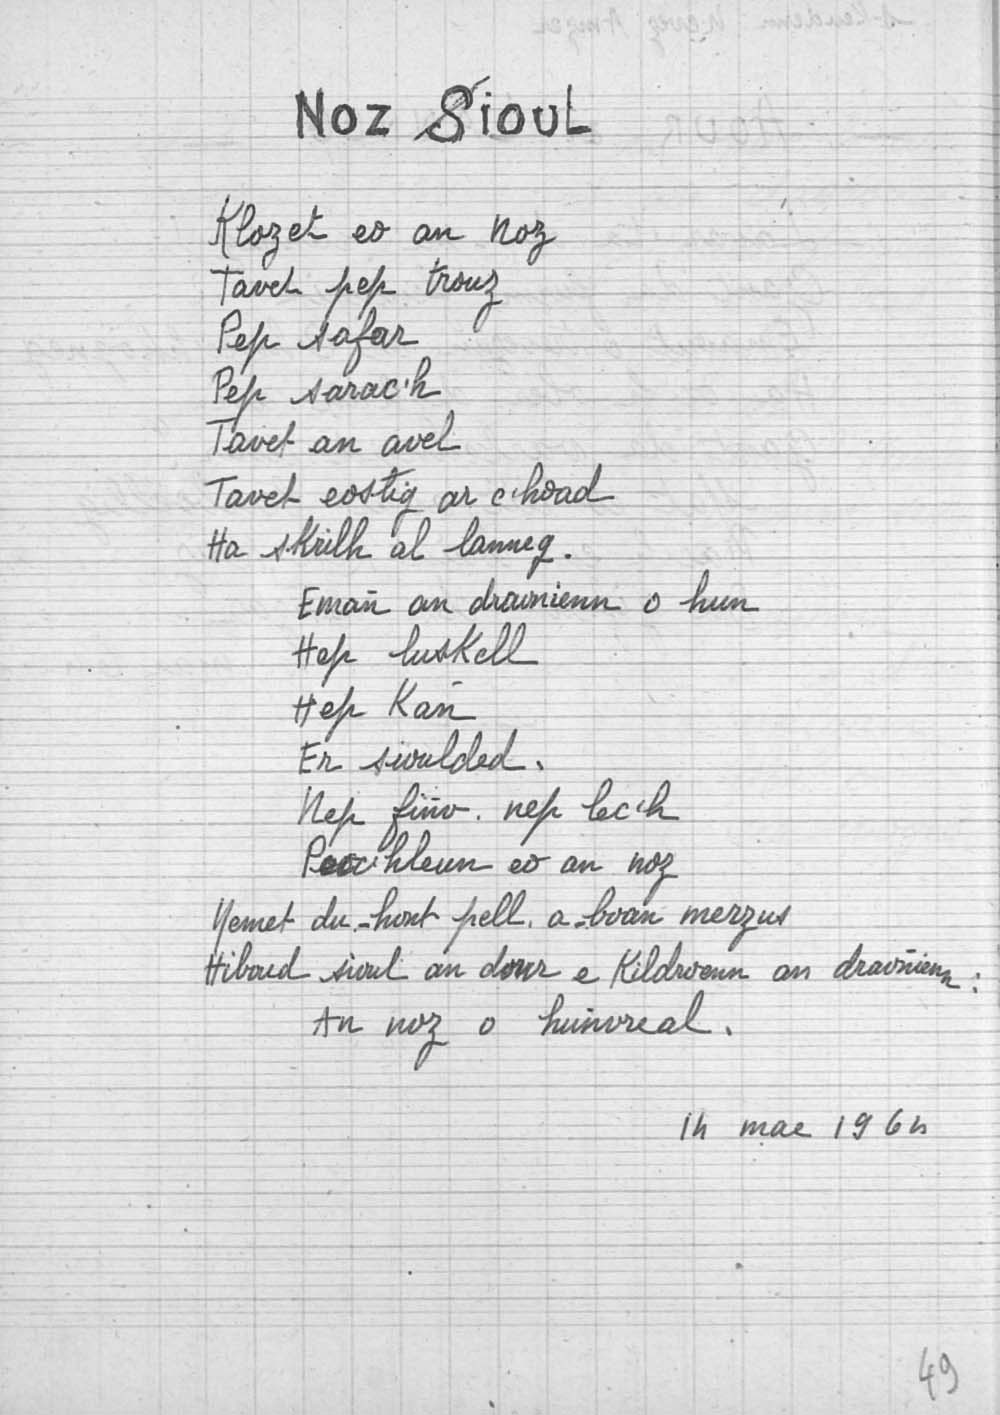 Noz Sioul
Klozet eo an noz
Tavet pep trouz
Pep safar
Pep sarac'h
Tavet an avel
Tavet eostig ar c'hoad
Ha skrilh al lanneg.
Emañ an draonienn o hun
Hep luskell
Hep Kan
Er sioulded.
Nep fiñv. nep lec'h
Peoc'hleun eo an noz
Nemet du-hont pell. a-boan merzus
Hiboud sioul an dour e Kildroenn an draoñienn:
An noz o huñvreal.
14 mae 1964
49